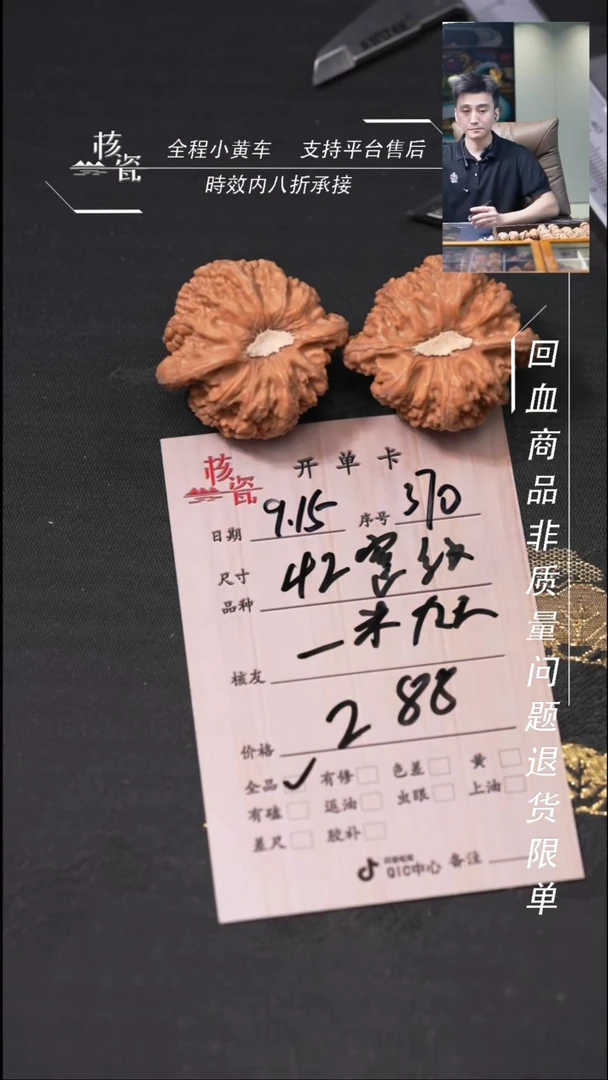 核瓷
全程小黄车 支持平台售后
時效内八折承接
回血商品非质量问题退货限单
核瓷
开单卡
日期 9.15 序号 370
尺寸 42密纹
品种
一米九二
核友
价格 288
全品 ✓ 有修 色差 黄
有磕 返油 虫眼 上油
差尺 胶补
QIC中心 备注